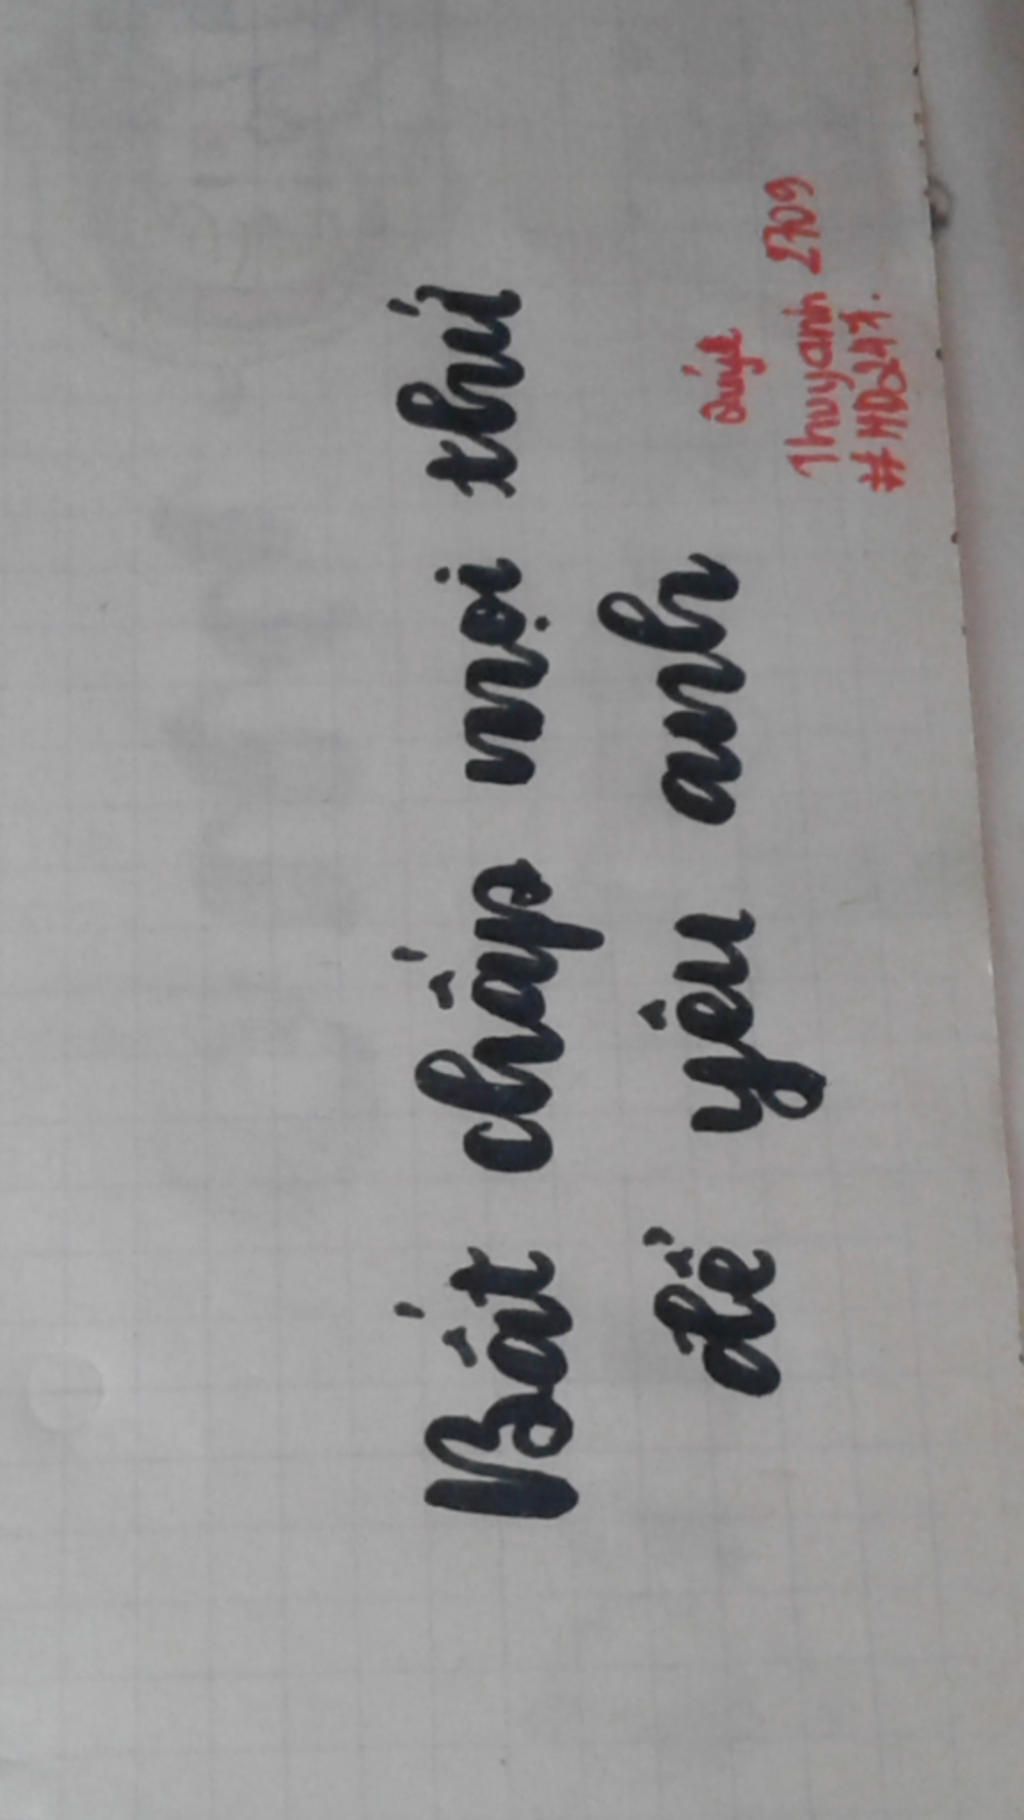 Bất chấp mọi thứ
để yêu anh
Thuyanh 2709